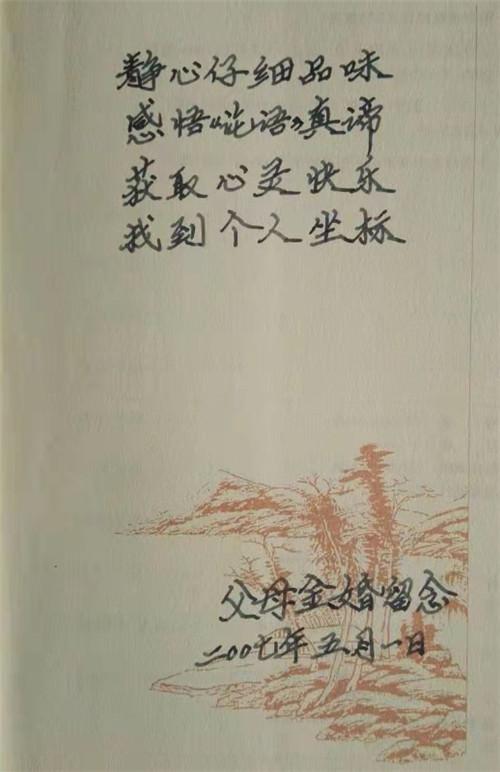 静心仔细品味
感悟《论语》真谛
获取心灵快乐
找到个人坐标
父母金婚留念
二00七年五月一日